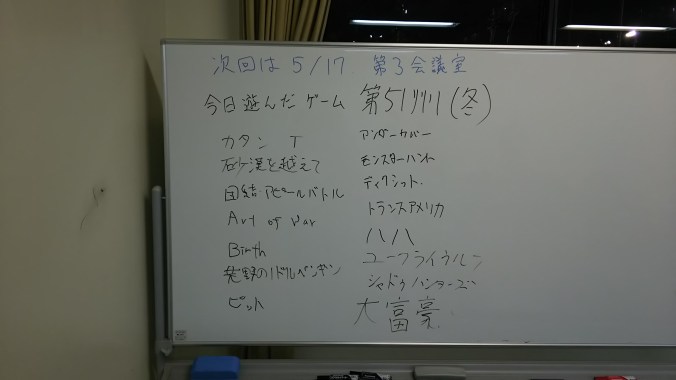 次回は 5/17 第3会議室
今日遊んだゲーム 第51 (冬)
カタン T
砂漠を越えて
団結:アピールバトル
Art of War
Birth
荒野のハドルペンギン
ピット
アンダーカバー
モンスターハント
ディクシット
トランスアメリカ
ハハ
ユーフライウルフ
シャドウハンターズ
大富豪